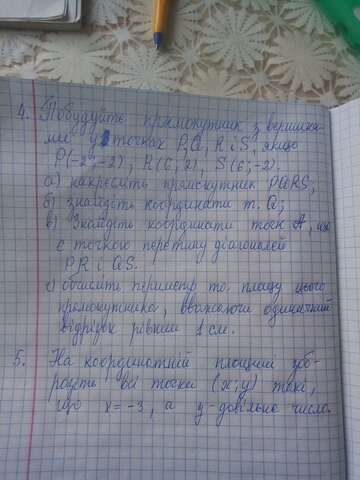 4. Побудуйте прямокутник з вершина-
ми у точках P, Q, R і S, якщо
P(-2;-2), R(6;2), S(6;-2).
а) накресліть прямокутник PQRS;
б) знайдіть координати т. Q;
в) Знайдіть координати точк А, що
є точкою перетину діагоналей
PR і QS.
г) обчисліть периметр та площу цього
прямокутника, вважаючи одиничний
відрізок рівним 1 см.
5. На координатній площині зоб-
разіть всі точки (x;y) такі,
що x=-3, а y-довільне число.